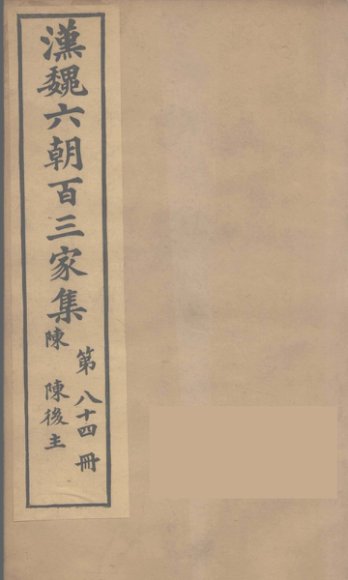 漢魏六朝百三家集
第八十四冊
陳 陳後主